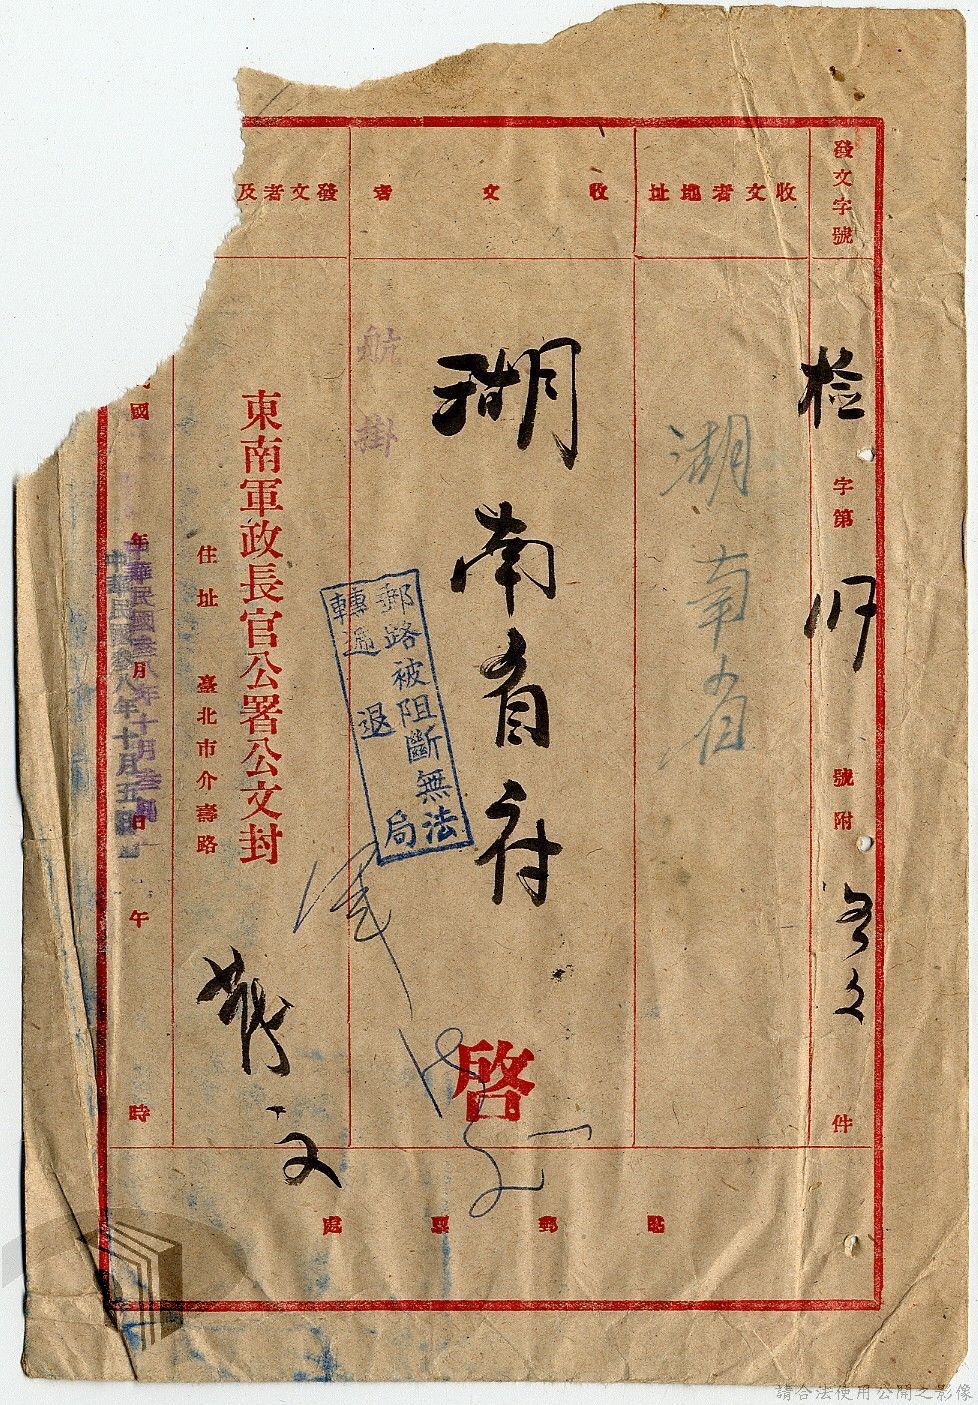 發文字號
檢
字第
號附
件
收文者地址
湖南省
收文者
湖南省府
啓
航掛
郵路被阻斷無法
轉遞退局
發文者及
東南軍政長官公署公文封
住址 臺北市介壽路
國 年 月 日 午 時
中華民國叁八年十月
中華民國叁八年十月五日
文
貼郵票處
請合法使用公開之影像